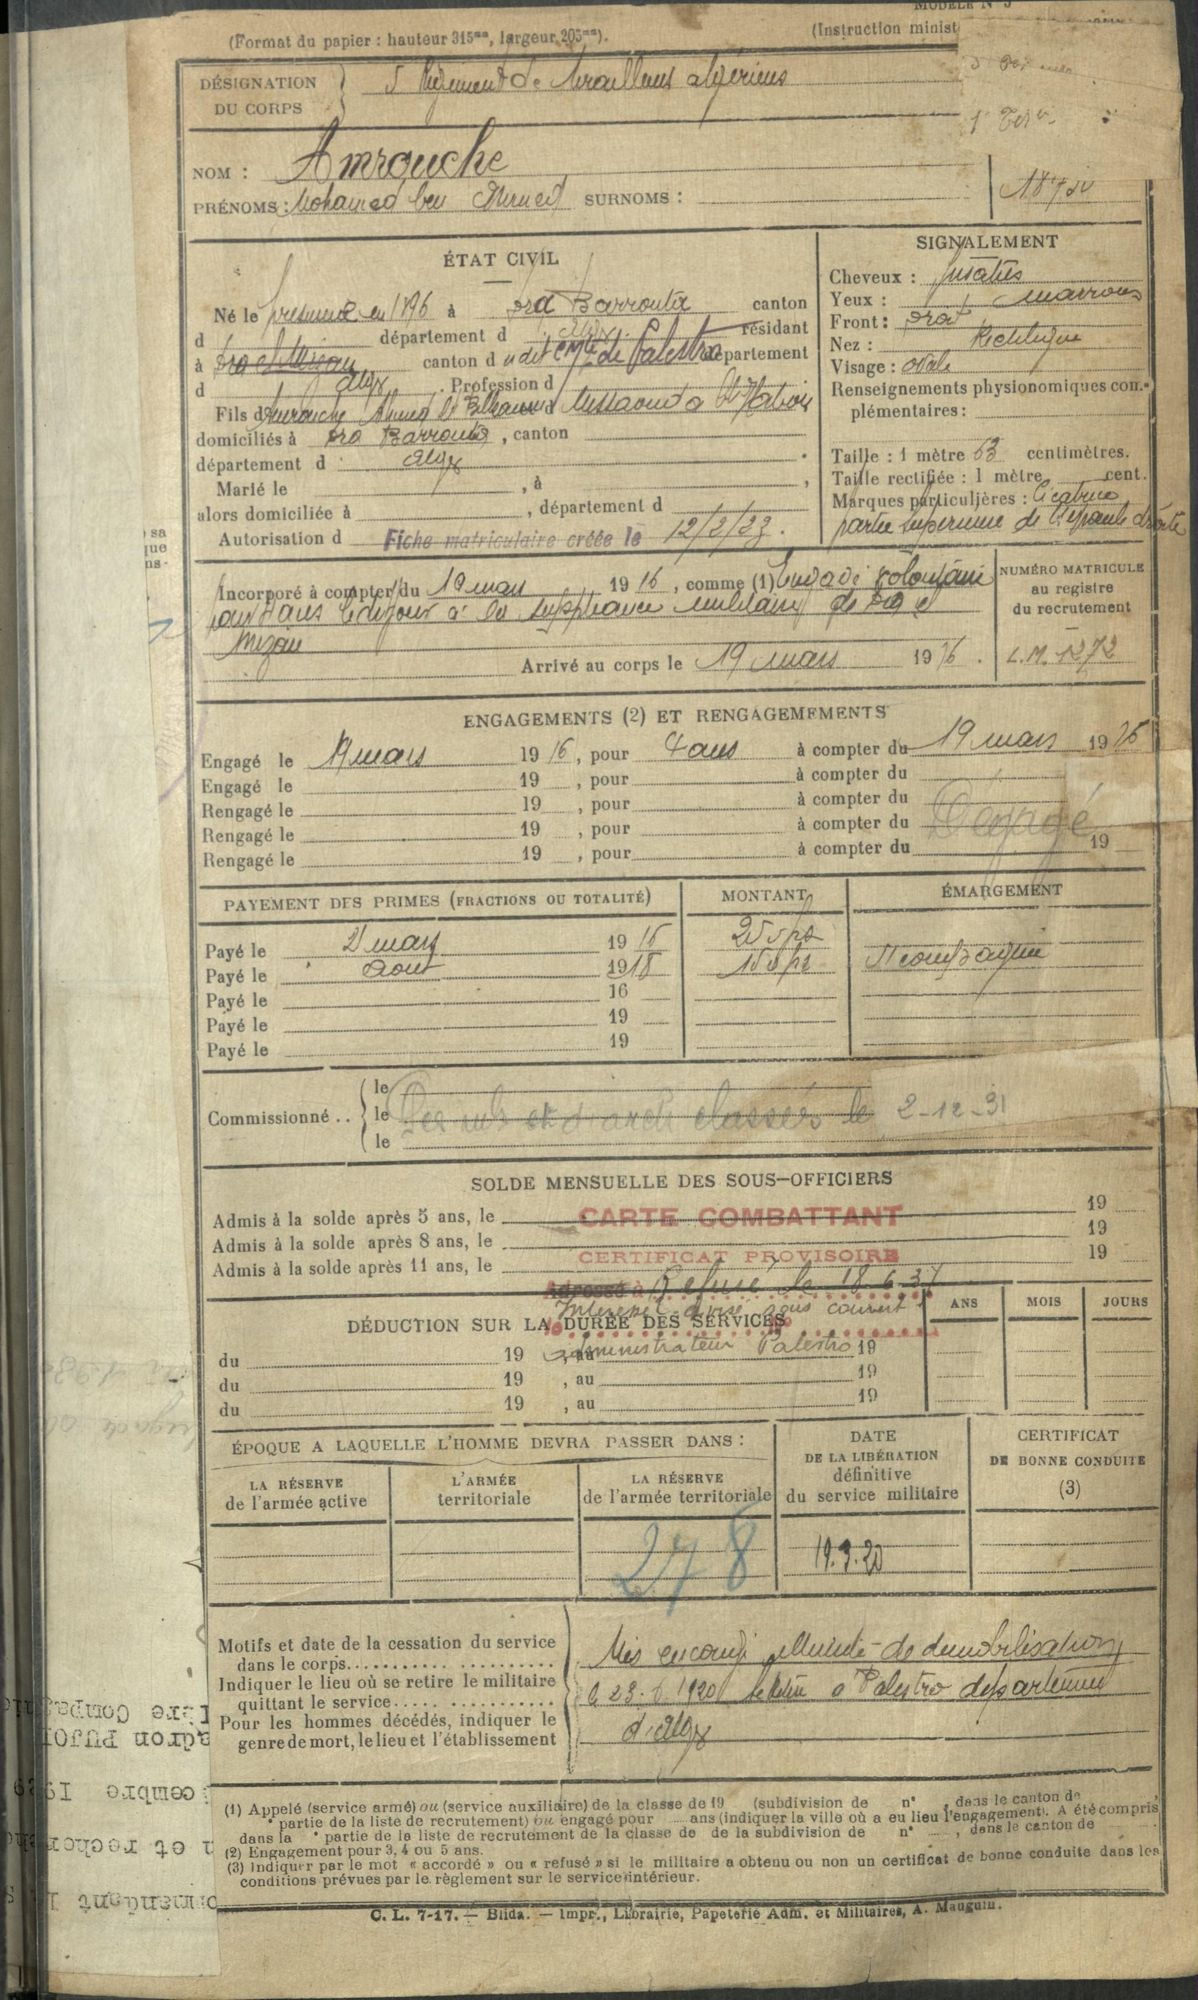 MODÈLE N° 5
(Format du papier : hauteur 315mm, largeur 205mm).
(Instruction minist
DÉSIGNATION
DU CORPS
5 Régiment de tirailleurs algériens
NOM : Amrouche
PRÉNOMS : Mohamed ben Ahmed SURNOMS :
ÉTAT CIVIL
Né le présumé en 1896 à Dra Barrouta canton
d département d Alger résidant
à Dra el Mizan canton d de Palestro département
d Alger . Profession d
Fils d Amrouche Ahmed et d Messaouda
domiciliés à Dra Barrouta , canton
département d Alger .
Marié le , à ,
alors domiciliée à , département d
Autorisation d Fiche matriculaire créée le 12/2/23.
SIGNALEMENT
Cheveux :
Yeux : marrons
Front : Droit
Nez : Rectiligne
Visage : ovale
Renseignements physionomiques com-
plémentaires :
Taille : 1 mètre 63 centimètres.
Taille rectifiée : 1 mètre cent.
Marques particulières : Cicatrice
partie supérieure de l'épaule droite
Incorporé à compter du 19 mars 1916 , comme (1) Engagé volontaire
pour 4 ans le dit jour à la suppléance militaire de Dra el
Mizan
Arrivé au corps le 19 mars 1916 .
NUMÉRO MATRICULE
au registre
du recrutement
L.M. 1272
ENGAGEMENTS (2) ET RENGAGEMEMENTS
Engagé le 19 mars 1916 , pour 4 ans à compter du 19 mars 1916
Engagé le 19 , pour à compter du
Rengagé le 19 , pour à compter du
Rengagé le 19 , pour à compter du Dégagé
Rengagé le 19 , pour à compter du 19
PAYEMENT DES PRIMES (FRACTIONS OU TOTALITÉ)
MONTANT
ÉMARGEMENT
Payé le 21 mars 1916
Payé le Aout 1918
Payé le 16
Payé le 19
Payé le 19
Commissionné . .
le
le classés le 2-12-31
le
SOLDE MENSUELLE DES SOUS-OFFICIERS
Admis à la solde après 5 ans, le 19
Admis à la solde après 8 ans, le 19
Admis à la solde après 11 ans, le 19
CARTE COMBATTANT
CERTIFICAT PROVISOIRE
Adressé à Refusé le 18.6.37
Intéressé avisé sous couvert
administrateur Palestro
DÉDUCTION SUR LA DURÉE DES SERVICES
ANS MOIS JOURS
du 19 , au 19
du 19 , au 19
du 19 , au 19
ÉPOQUE A LAQUELLE L'HOMME DEVRA PASSER DANS :
LA RÉSERVE
de l'armée active
L'ARMÉE
territoriale
LA RÉSERVE
de l'armée territoriale
DATE
DE LA LIBÉRATION
définitive
du service militaire
CERTIFICAT
DE BONNE CONDUITE
(3)
278
19.3.20
Motifs et date de la cessation du service
dans le corps
Indiquer le lieu où se retire le militaire
quittant le service
Pour les hommes décédés, indiquer le
genre de mort, le lieu et l'établissement
Mis en congé illimité de démobilisation
le 23. 1920 se retire à Palestro département
d'Alger
(1) Appelé (service armé) ou (service auxiliaire) de la classe de 19 (subdivision de n° , dans le canton de
° partie de la liste de recrutement) ou engagé pour ans (indiquer la ville où a eu lieu l'engagement). A été compris
dans la ° partie de la liste de recrutement de la classe de de la subdivision de n° , dans le canton de
(2) Engagement pour 3, 4 ou 5 ans.
(3) Indiquer par le mot « accordé » ou « refusé » si le militaire a obtenu ou non un certificat de bonne conduite dans les
conditions prévues par le règlement sur le service intérieur.
C. L. 7-17. — Blida. — Impr., Librairie, Papeterie Adm. et Militaires, A. Mauguin.